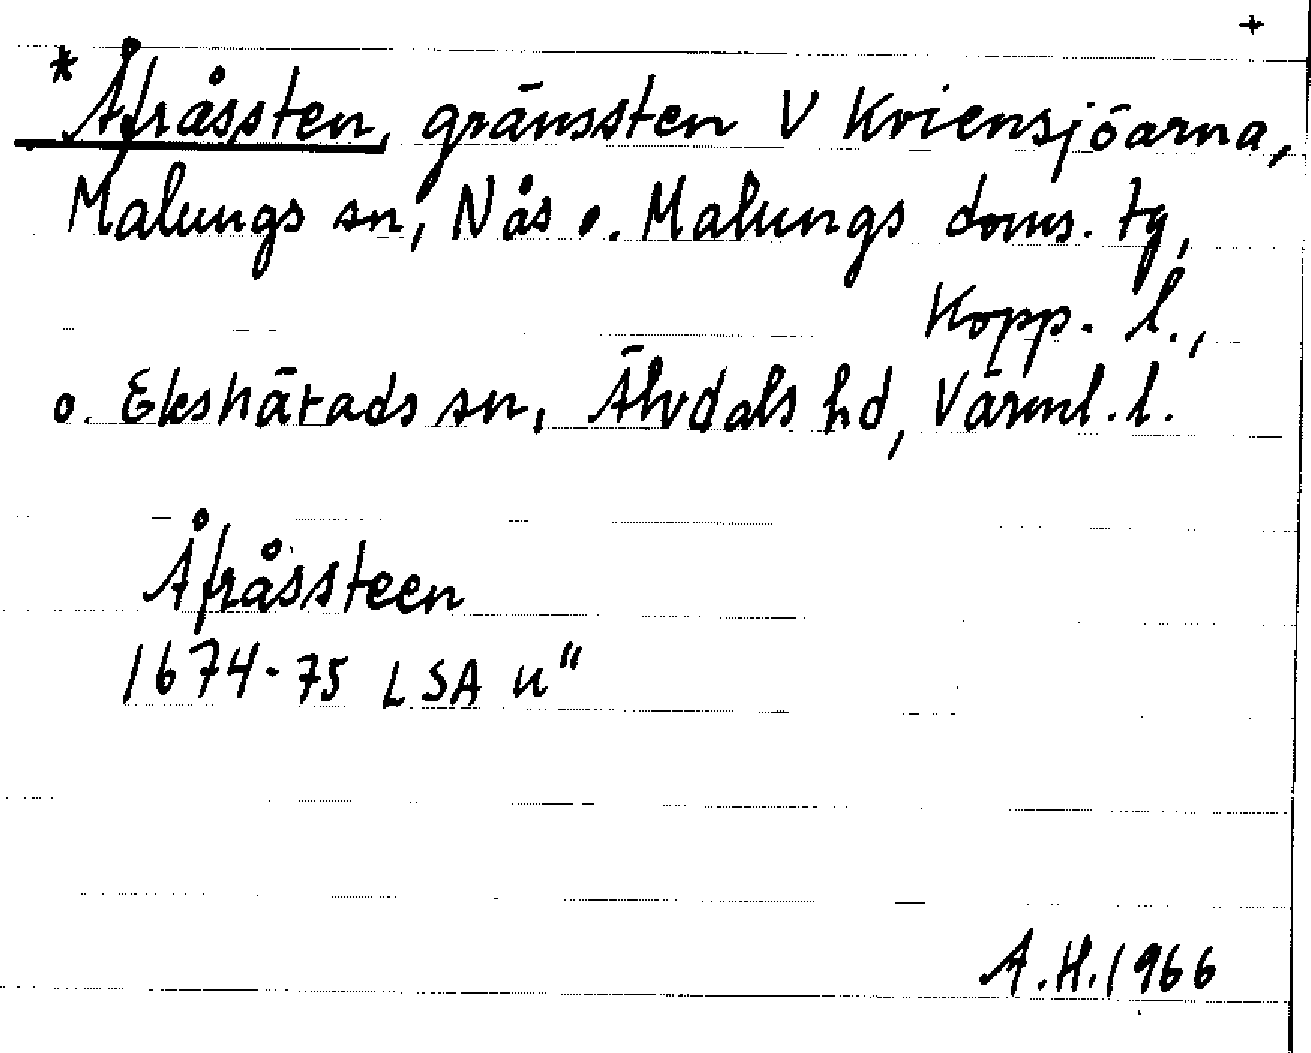 +
*Åfråssten, gränssten V Kviensjöarna,
Malungs sn, Nås o. Malungs doms. tg,
Kopp. l.,
o. Ekshärads sn, Älvdals hd, Värml. l.
Åfråssteen
1674-75 LSA u"
A.H. 1966